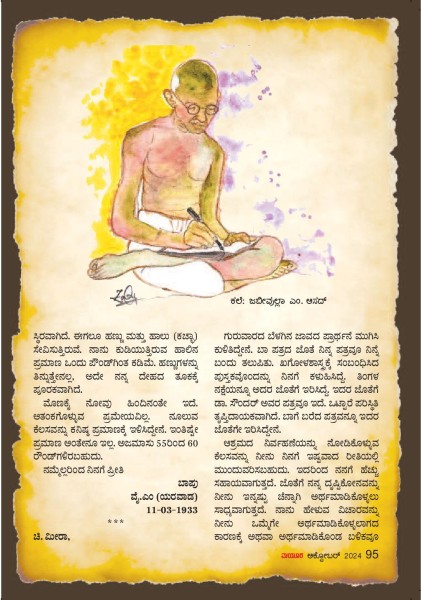 ಕಲೆ: ಜಬೀವುಲ್ಲಾ ಎಂ. ಆಸದ್
ಸ್ಥಿರವಾಗಿದೆ. ಈಗಲೂ ಹಣ್ಣು ಮತ್ತು ಹಾಲು (ಕಚ್ಚಾ)
ಸೇವಿಸುತ್ತಿರುವೆ. ನಾನು ಕುಡಿಯುತ್ತಿರುವ ಹಾಲಿನ
ಪ್ರಮಾಣ ಒಂದು ಪೌಂಡ್‌ಗಿಂತ ಕಡಿಮೆ. ಹಣ್ಣುಗಳನ್ನು
ತಿನ್ನುತ್ತೇನಲ್ಲ, ಅದೇ ನನ್ನ ದೇಹದ ತೂಕಕ್ಕೆ
ಪೂರಕವಾಗಿದೆ.
ಮೊಣಕೈ ನೋವು ಹಿಂದಿನಂತೇ ಇದೆ.
ಆತಂಕಗೊಳ್ಳುವ ಪ್ರಮೇಯವಿಲ್ಲ. ನೂಲುವ
ಕೆಲಸವನ್ನು ಕನಿಷ್ಠ ಪ್ರಮಾಣಕ್ಕೆ ಇಳಿಸಿದ್ದೇನೆ. ಇಂತಿಷ್ಟೇ
ಪ್ರಮಾಣ ಅಂತೇನೂ ಇಲ್ಲ. ಅಜಮಾಸು 55ರಿಂದ 60
ರೌಂಡ್‌ಗಳಿರಬಹುದು.
ನಮ್ಮೆಲ್ಲರಿಂದ ನಿನಗೆ ಪ್ರೀತಿ
ಬಾಪು
ವೈ.ಎಂ (ಯರವಾಡ)
11-03-1933
***
ಚಿ.ಮೀರಾ,
ಗುರುವಾರದ ಬೆಳಗಿನ ಜಾವದ ಪ್ರಾರ್ಥನೆ ಮುಗಿಸಿ
ಕುಳಿತಿದ್ದೇನೆ. ಬಾ ಪತ್ರದ ಜೊತೆ ನಿನ್ನ ಪತ್ರವೂ ನಿನ್ನೆ
ಬಂದು ತಲುಪಿತು. ಖಗೋಳಶಾಸ್ತ್ರಕ್ಕೆ ಸಂಬಂಧಿಸಿದ
ಪುಸ್ತಕವೊಂದನ್ನು ನಿನಗೆ ಕಳುಹಿಸಿದ್ದೆ. ತಿಂಗಳ
ನಕ್ಷೆಯನ್ನೂ ಅದರ ಜೊತೆಗೆ ಇರಿಸಿದ್ದೆ. ಇದರ ಜೊತೆಗೆ
ಡಾ. ಸೌಂದರ್ ಅವರ ಪತ್ರವೂ ಇದೆ. ಒಟ್ಟಾರೆ ಪರಿಸ್ಥಿತಿ
ತೃಪ್ತಿದಾಯಕವಾಗಿದೆ. ಬಾಗೆ ಬರೆದ ಪತ್ರವನ್ನೂ ಇದರ
ಜೊತೆಗೇ ಇರಿಸಿದ್ದೇನೆ.
ಆಶ್ರಮದ ನಿರ್ವಹಣೆಯನ್ನು ನೋಡಿಕೊಳ್ಳುವ
ಕೆಲಸವನ್ನು ನೀನು ನಿನಗೆ ಇಷ್ಟವಾದ ರೀತಿಯಲ್ಲಿ
ಮುಂದುವರಿಸಬಹುದು. ಇದರಿಂದ ನನಗೆ ಹೆಚ್ಚು
ಸಹಾಯವಾಗುತ್ತದೆ. ಜೊತೆಗೆ ನನ್ನ ದೃಷ್ಟಿಕೋನವನ್ನು
ನೀನು ಇನ್ನಷ್ಟು ಚೆನ್ನಾಗಿ ಅರ್ಥಮಾಡಿಕೊಳ್ಳಲು
ಸಾಧ್ಯವಾಗುತ್ತದೆ. ನಾನು ಹೇಳುವ ವಿಚಾರವನ್ನು
ನೀನು ಒಮ್ಮೆಗೇ ಅರ್ಥಮಾಡಿಕೊಳ್ಳಲಾಗದ
ಕಾರಣಕ್ಕೆ ಅಥವಾ ಅರ್ಥಮಾಡಿಕೊಂಡ ಬಳಿಕವೂ
ಮಯೂರ ಅಕ್ಟೋಬರ್ 2024 95